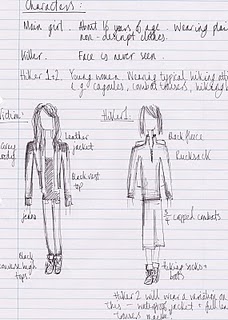 Characters :
Main girl. About 16 years of age. Wearing plain
non-descript clothes.
Killer. Face is never seen.
Hiker 1+2. Young women. Wearing typical hiking
e.g. cagoules, combat trousers, hiking
Victim:
Hiker 1
Leather
jacket
Black fleece
Grey
hoody
Rucksack
Black vest
top
Jeans
3/4 cropped combats
Black
converse high
tops
hiking socks +
boots
Hiker 2 will wear a variation on
this - waterproof jacket + full
trousers maybe